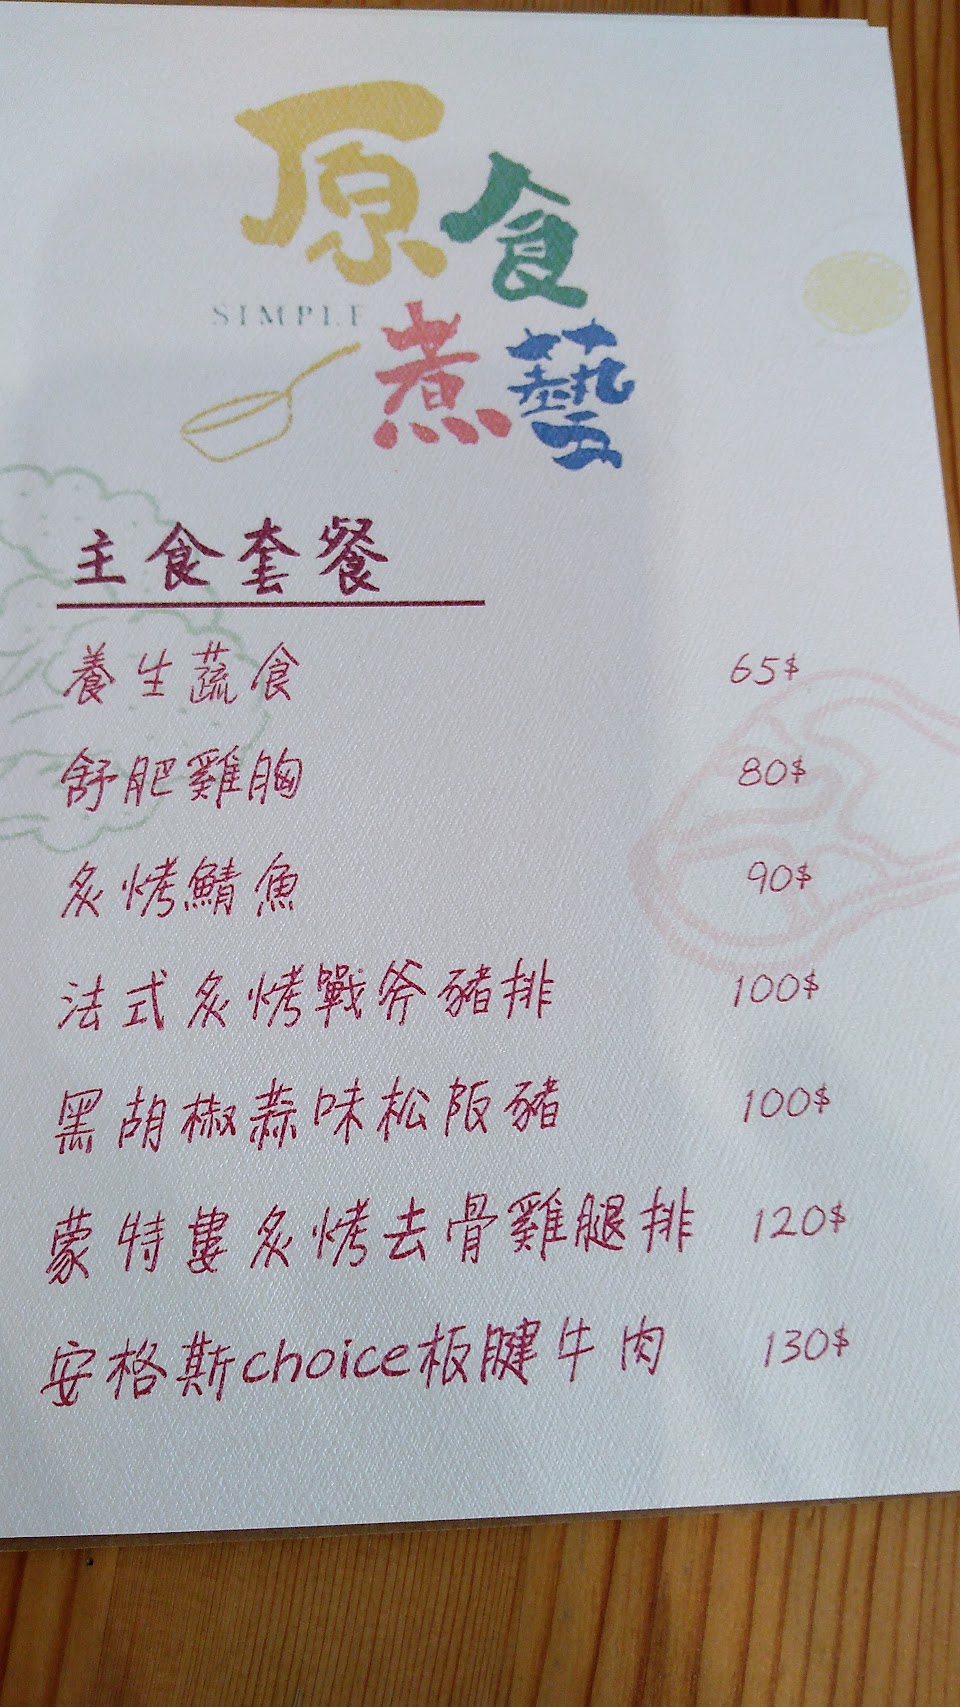 原食
SIMPLE
煮藝
主食套餐
養生蔬食 65$
舒肥雞胸 80$
炙烤鯖魚 90$
法式炙烤戰斧豬排 100$
黑胡椒蒜味松阪豬 100$
蒙特婁炙烤去骨雞腿排 120$
安格斯choice板腱牛肉 130$